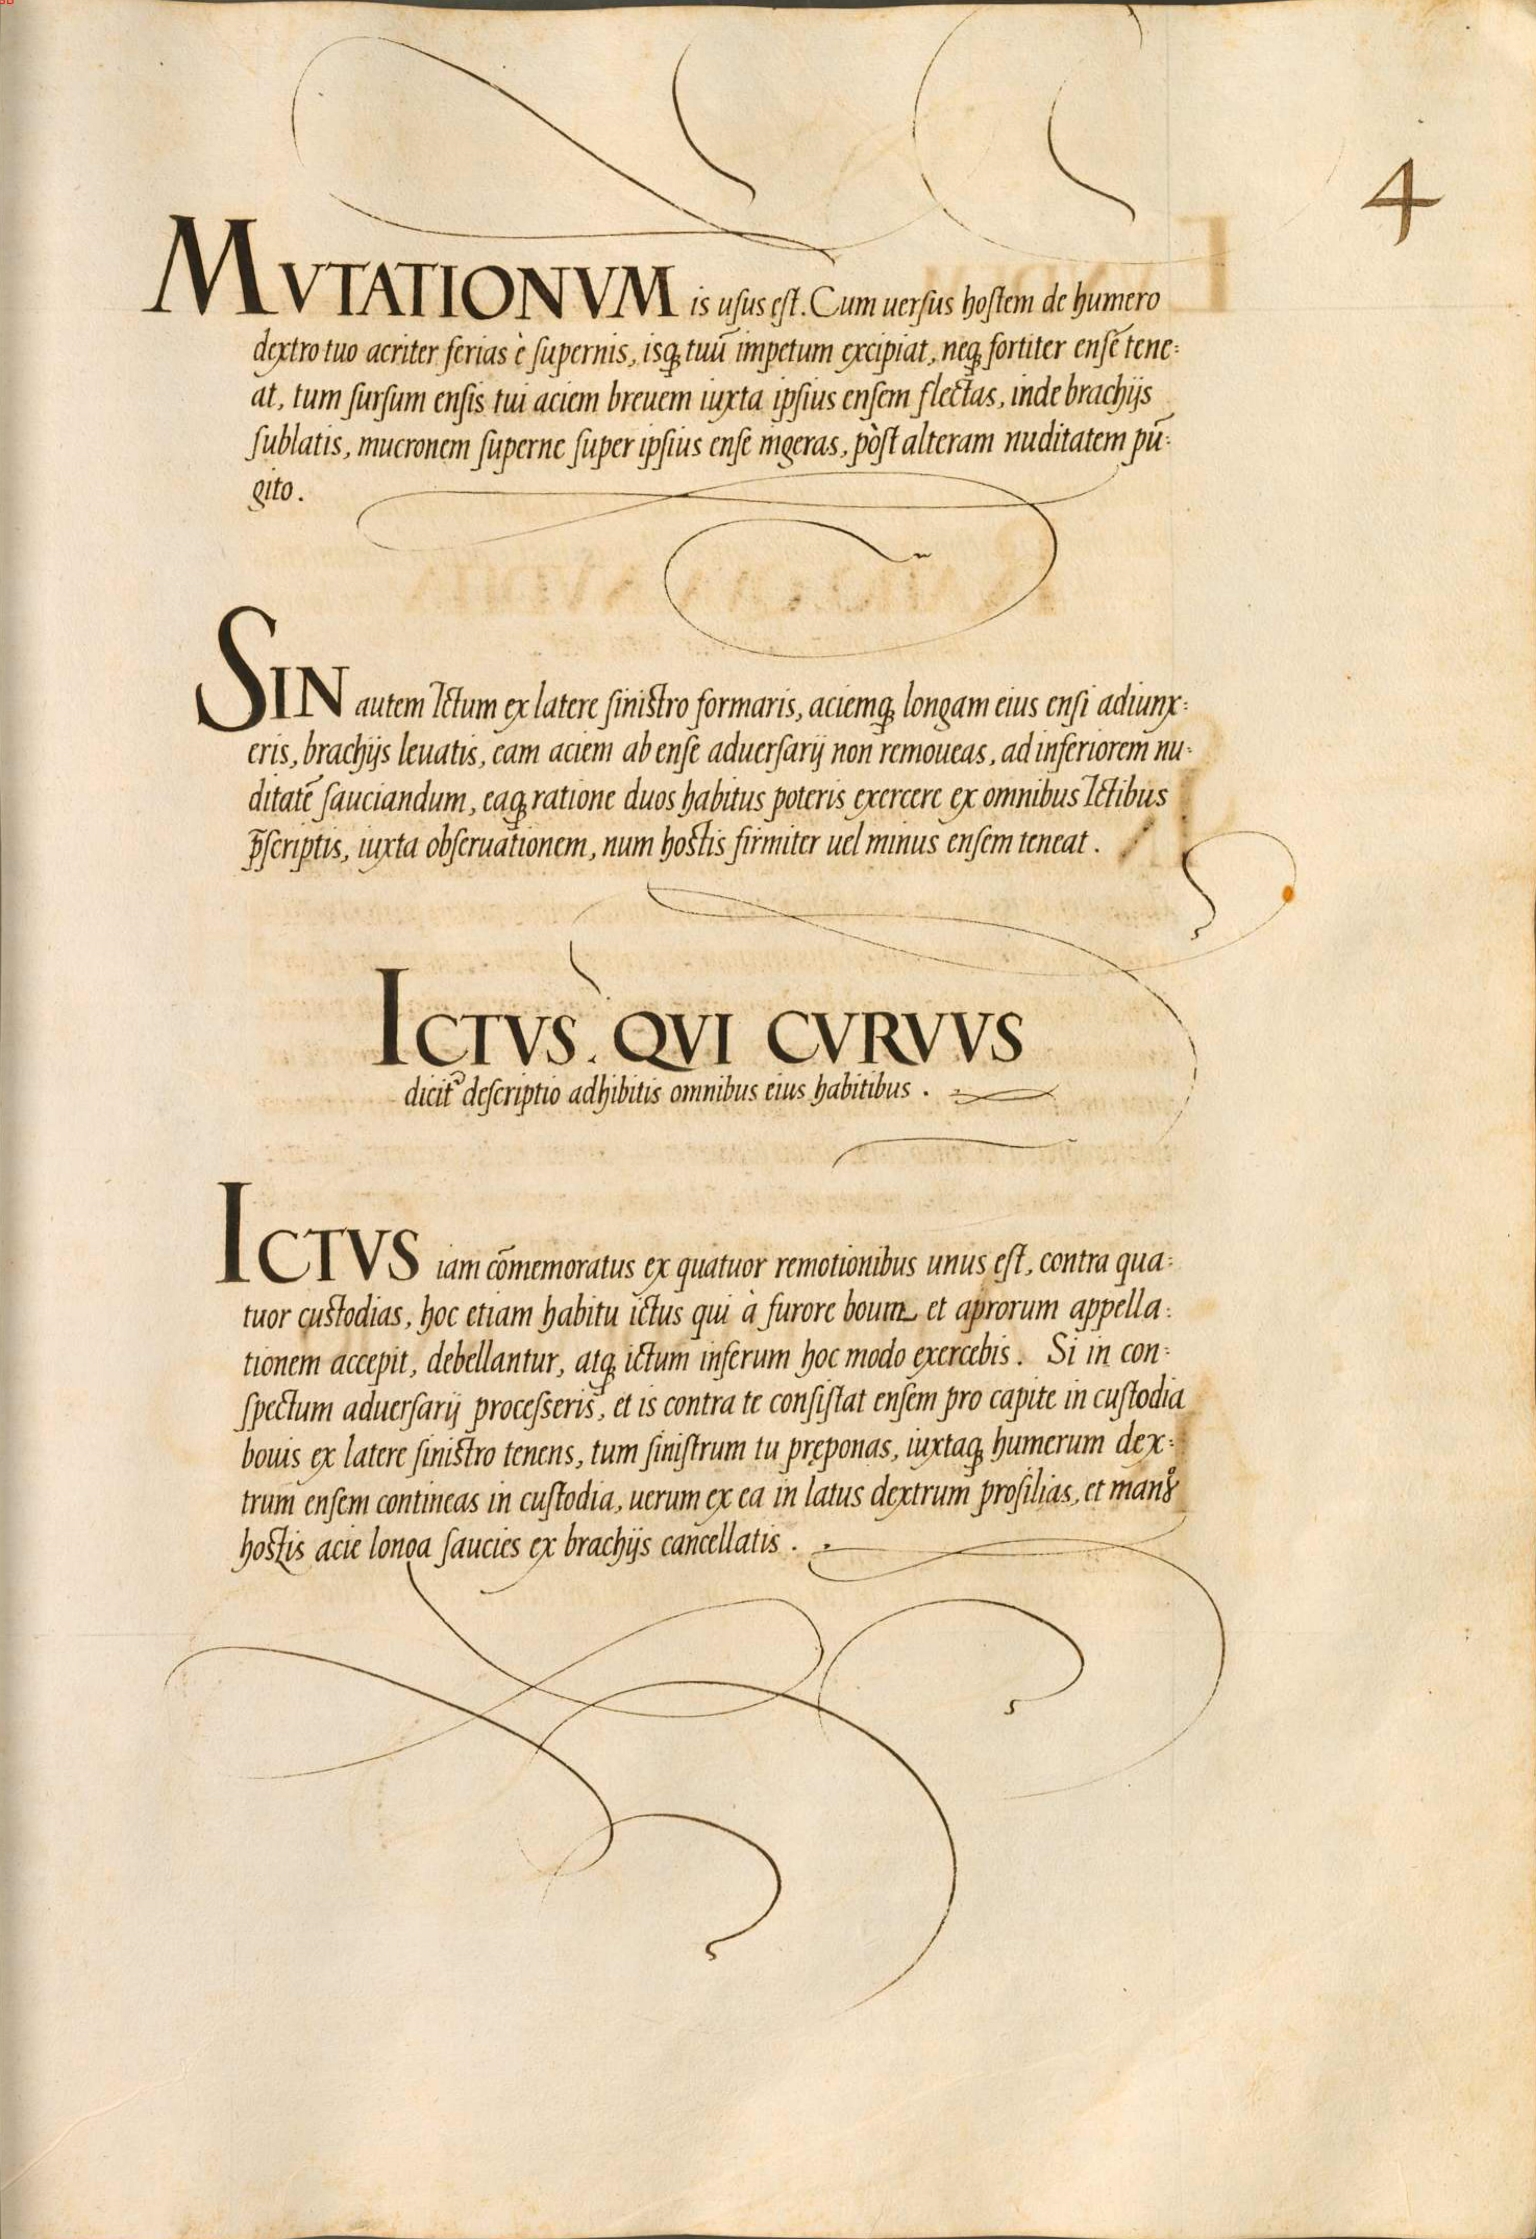 4
MVTATIONVM is usus est. Cum uersus hostem de humero
dextro tuo acriter ferias è supernis, isq; tuū impetum excipiat, neq; fortiter ensē tene=
at, tum sursum ensis tui aciem breuem iuxta ipsius ensem flectas, inde brachijs
sublatis, mucronem superne super ipsius ense ingeras, pòst alteram nuditatem pū=
gito.
SIN autem Ictum ex latere sinistro formaris, aciemq; longam eius ensi adiunx=
eris, brachijs leuatis, eam aciem ab ense aduersarij non remoueas, ad inferiorem nu=
ditatē sauciandum, eaq; ratione duos habitus poteris exercere ex omnibus Ictibus
p̄scriptis, iuxta obseruationem, num hostis firmiter uel minus ensem teneat.
ICTVS. QVI CVRVVS
dicit᷑ descriptio adhibitis omnibus eius habitibus.
ICTVS iam cōmemoratus ex quatuor remotionibus unus est, contra qua=
tuor custodias, hoc etiam habitu ictus qui à furore boum et aprorum appella=
tionem accepit, debellantur, atq; ictum inferum hoc modo exercebis. Si in con=
spectum aduersarij processeris, et is contra te consistat ensem pro capite in custodia
bouis ex latere sinistro tenens, tum sinistrum tu pręponas, iuxtaq; humerum dex=
trum ensem contineas in custodia, uerum ex ea in latus dextrum prosilias, et man9
hostis acie longa saucies ex brachijs cancellatis.